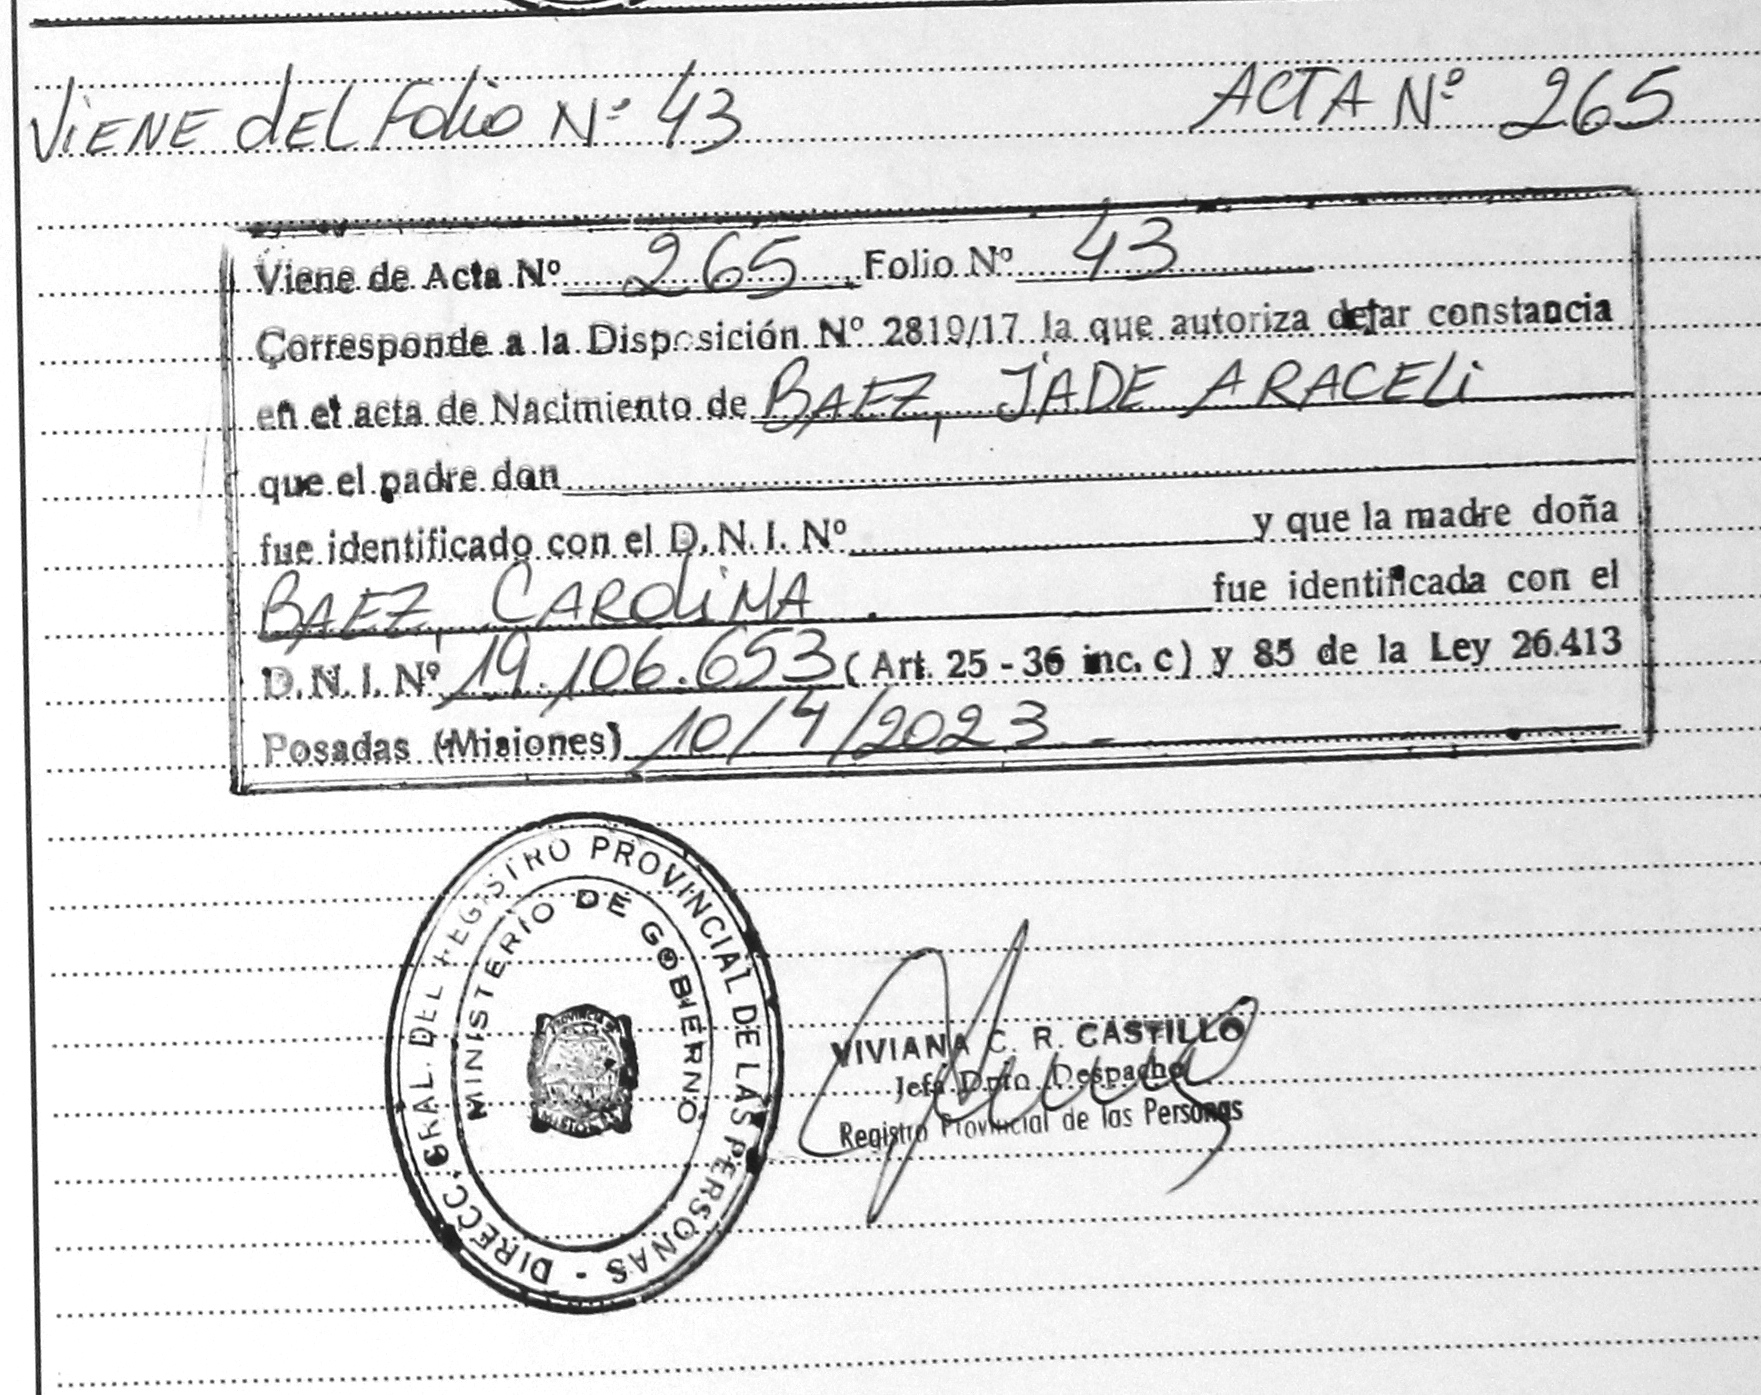 Viene del Folio Nº 43 ACTA Nº 265
Viene de Acta Nº 265, Folio Nº 43
Corresponde a la Disposición Nº 2819/17 la que autoriza dejar constancia
en el acta de Nacimiento de BAEZ, JADE ARACELI
que el padre don
fue identificado con el D.N.I. Nº y que la madre doña
BAEZ, CAROLINA. fue identificada con el
D.N.I. Nº 19.106.653 (Art. 25 - 36 inc. c) y 85 de la Ley 26.413
Posadas (Misiones) 10/4/2023 -
DIRECC. GRAL. DEL REGISTRO PROVINCIAL DE LAS PERSONAS -
MINISTERIO DE GOBIERNO
PROVINCIA DE
MISIONES
VIVIANA C. R. CASTILLO
Jefa Dpto. Despacho
Registro Provincial de las Personas